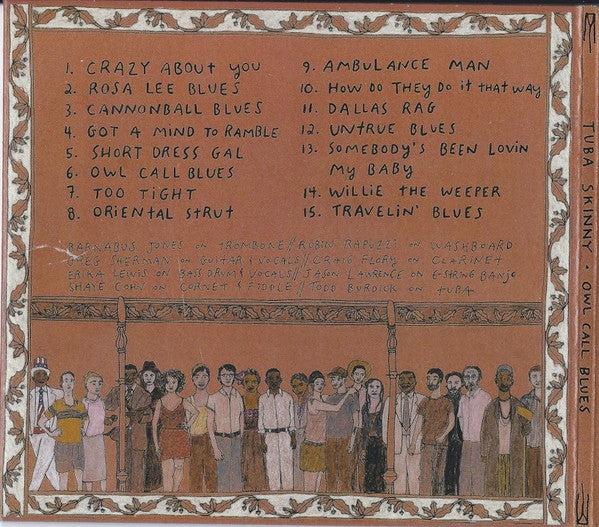 1. CRAZY ABOUT YOU
2. ROSA LEE BLUES
3. CANNONBALL BLUES
4. GOT A MIND TO RAMBLE
5. SHORT DRESS GAL
6. OWL CALL BLUES
7. TOO TIGHT
8. ORIENTAL STRUT
9. AMBULANCE MAN
10. HOW DO THEY DO it THAT WAY
11. DALLAS RAG
12. UNTRUE BLUES
13. SOMEBODY'S BEEN LOVIN
MY BABY
14. WILLIE THE WEEPER
15. TRAVELIN' BLUES
BARNABUS JONES ON TROMBONE // ROBIN RAPUZZI ON WASHBOARD
GREG SHERMAN ON GUITAR & VOCALS // CRAIG FLORY ON CLARINET
ERIKA LEWIS ON BASS DRUM & VOCALS // JASON LAWRENCE ON 6-STRING BANJO
SHAYE COHN ON CORNET & FIDDLE // TODD BURDICK ON TUBA
TUBA SKINNY • OWL CALL BLUES